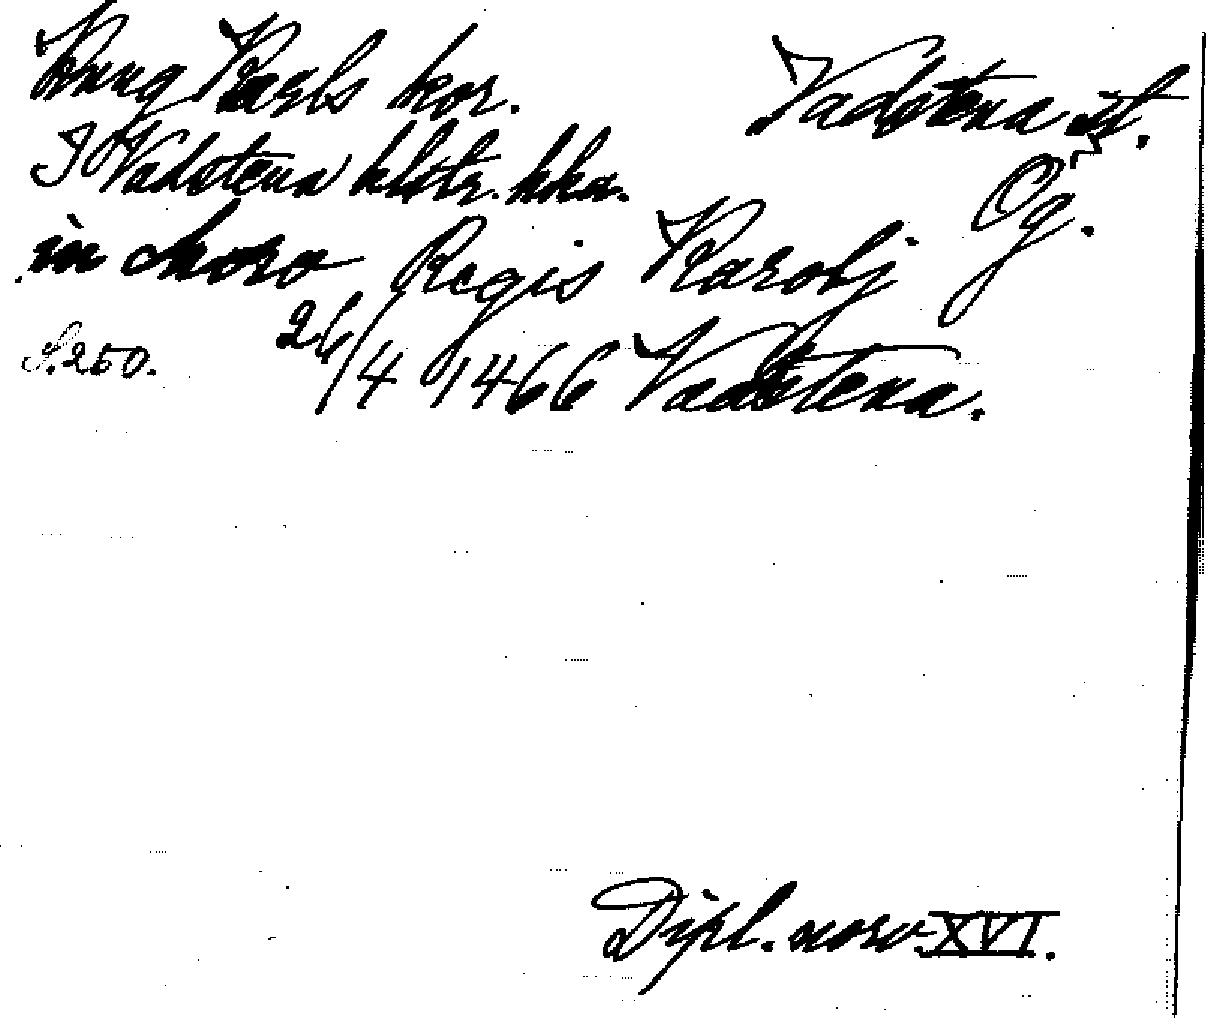 Kung Karls kor.
Vadstena st.
I Vadstena klstr. kka.
Ög.
in choro Regis Karolj
S. 250. 26/4 1466 Vadstena.
Dipl. norv. XVI.